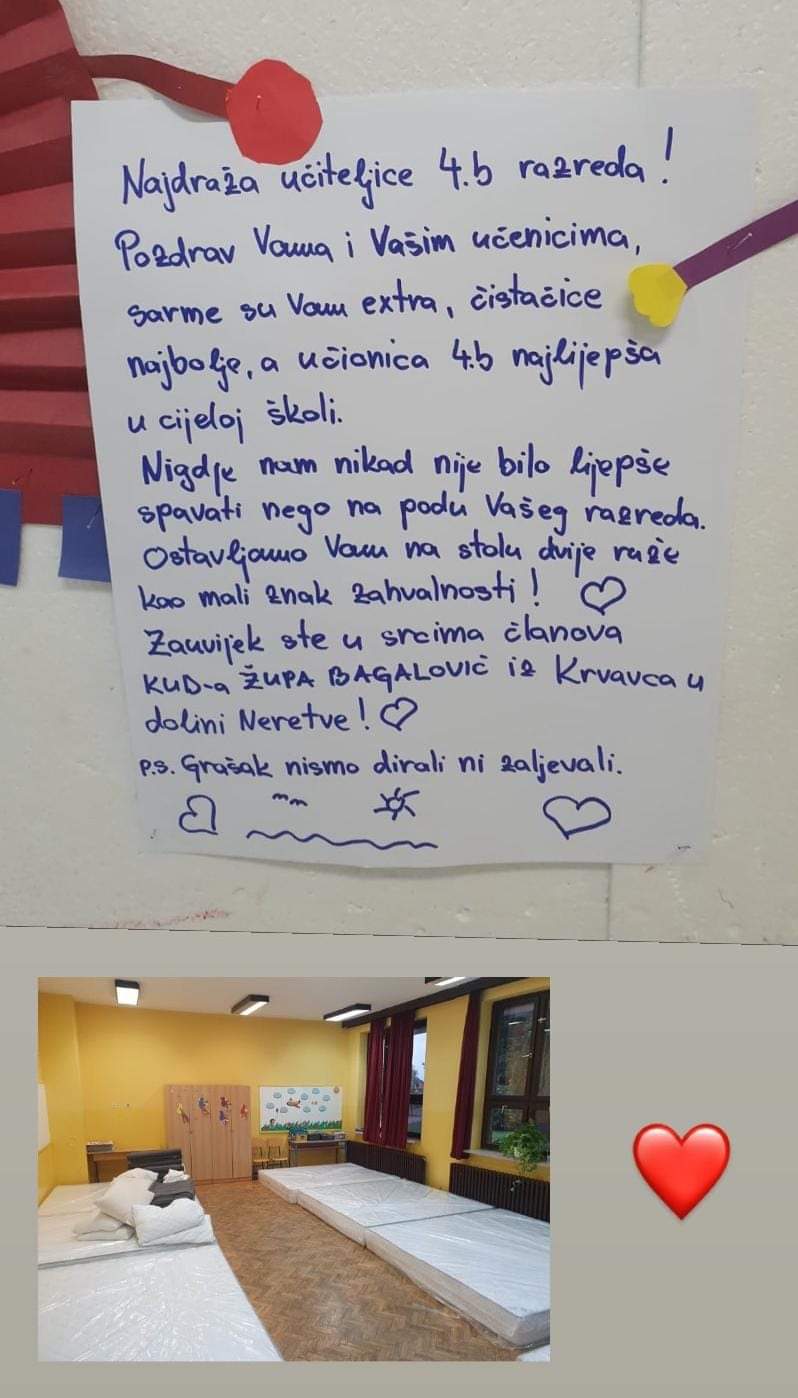 Najdraža učiteljice 4.b razreda!
Pozdrav Vama i Vašim učenicima,
sarme su Vam extra, čistačice
najbolje, a učionica 4.b najlijepša
u cijeloj školi.
Nigdje nam nikad nije bilo ljepše
spavati nego na podu Vašeg razreda.
Ostavljamo Vam na stolu dvije ruže
kao mali znak zahvalnosti!
Zauvijek ste u srcima članova
KUD-a ŽUPA BAGALOVIĆ iz Krvavca u
dolini Neretve!
p.s. Grašak nismo dirali ni zaljevali.